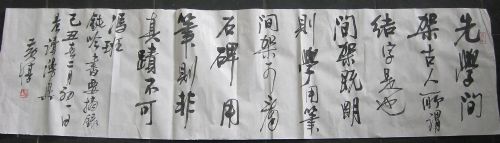 先學間
架古人所謂
結字是也
間架既明
則學用筆
間架可看
石碑用
筆則非
真蹟不可
馮班
鈍吟書要摘錄
己丑年二月初八日